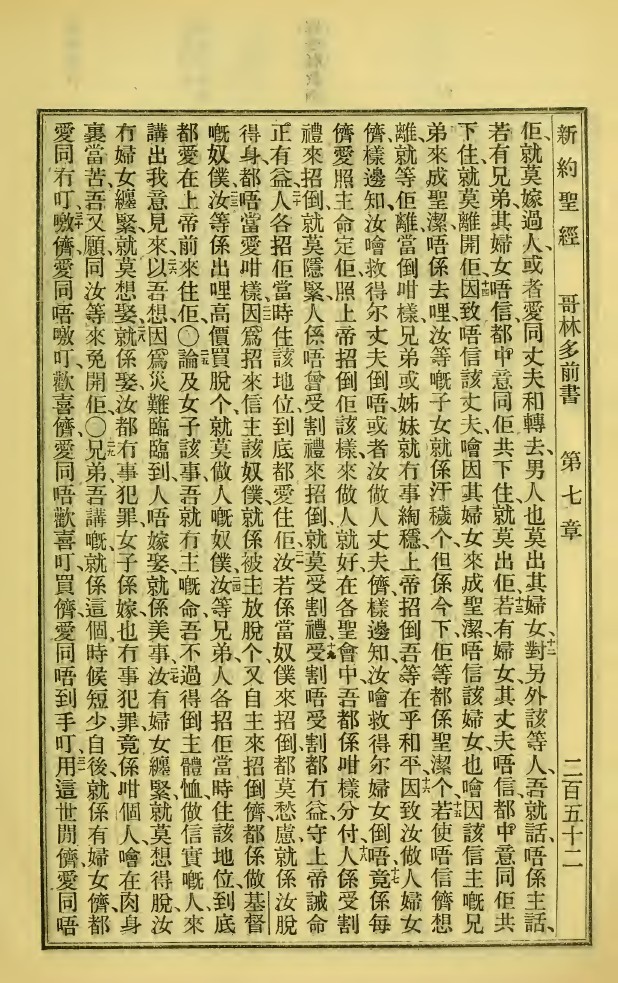 新約聖經　哥林多前書　第七章　二百五十二
佢、就莫嫁過人、或者愛同丈夫和轉去、男人也莫出其婦女、十二對另外該等人、吾就話、唔係主話、
若有兄弟其婦女唔信、都中意同佢共下住、就莫出佢、十三若有婦女其丈夫唔信、都中意同佢共
下住、就莫離開佢、十四因致唔信該丈夫、噲因其婦女來成聖潔、唔信該婦女、也噲因該信主嘅兄
弟來成聖潔、唔係去哩、汝等嘅子女、就係汗穢个、但係今下佢等都係聖潔个、十五若使唔信儕想
離、就等佢離、當倒咁樣、兄弟或姊妹、就冇事綯穩、上帝招倒吾等在乎和平、十六因致汝做人婦女
儕、樣邊知汝噲救得尔丈夫倒唔、或者汝做人丈夫儕、樣邊知汝噲救得尔婦女倒唔、十七竟係每
儕愛照主命定佢、照上帝招倒佢該樣、來做人就好、在各聖會中、吾都係咁樣分付、十八人係受割
禮來招倒、就莫隱緊、人係唔曾受割禮來招倒、就莫受割禮、十九受割唔受割都冇益、守上帝誡命
正有益、二十人各招佢當時、住該地位、到底都愛住佢、二一汝若係當奴僕來招倒、都莫愁慮、就係汝脫
得身、都唔當愛咁樣、二二因爲招來信主該奴僕、就係被主放脫个、又自主來招倒儕、都係做基督
嘅奴僕、二三汝等係出哩高價買脫个、就莫做人嘅奴僕、二四汝等兄弟、人各招佢當時、住該地位、到底
都愛在上帝前來住佢、〇二五論及女子該事、吾就冇主嘅命、吾不過得倒主體恤、做信實嘅人、來
講出我意見來、二六以吾想、因爲災難臨臨到、人唔嫁娶、就係美事、二七汝有婦女纏緊、就莫想得脫、汝
冇婦女纏緊、就莫想娶、二八就係娶、汝都冇事犯罪、女子係嫁、也冇事犯罪、竟係咁個人、噲在肉身
裏當苦、吾又願同汝等來免開佢、〇二九兄弟、吾講嘅、就係這個時候短少、自後就係有婦女儕、都
愛同冇叮、三十噭儕、愛同唔噭叮、歡喜儕、愛同唔歡喜叮、買儕、愛同唔到手叮、三一用這世間儕、愛同唔